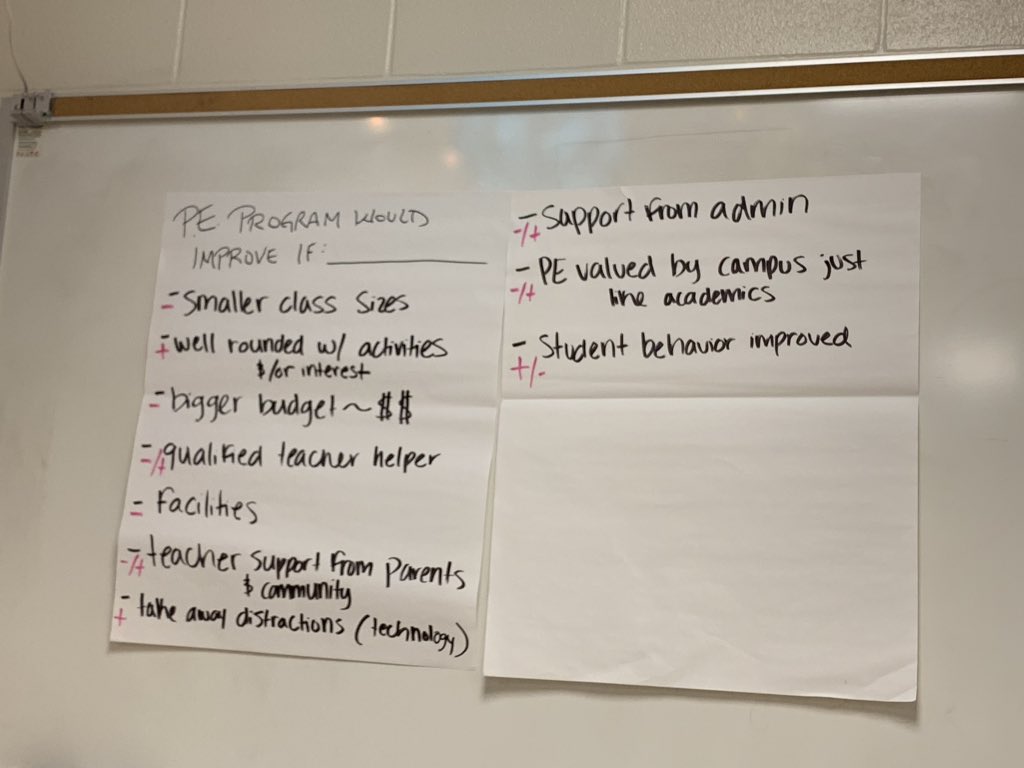 P.E. PROGRAM WOULD
IMPROVE IF: ___________
- Smaller class sizes
-
- well rounded w/ activities
+
$/or interest
- bigger budget ~ $$
-
- qualified teacher helper
-/+
- Facilities
-
- teacher support from parents
-/+
$ community
- take away distractions (technology)
+
- Support from admin
-/+
- PE valued by campus just
-/+
like academics
- Student behavior improved
+/-